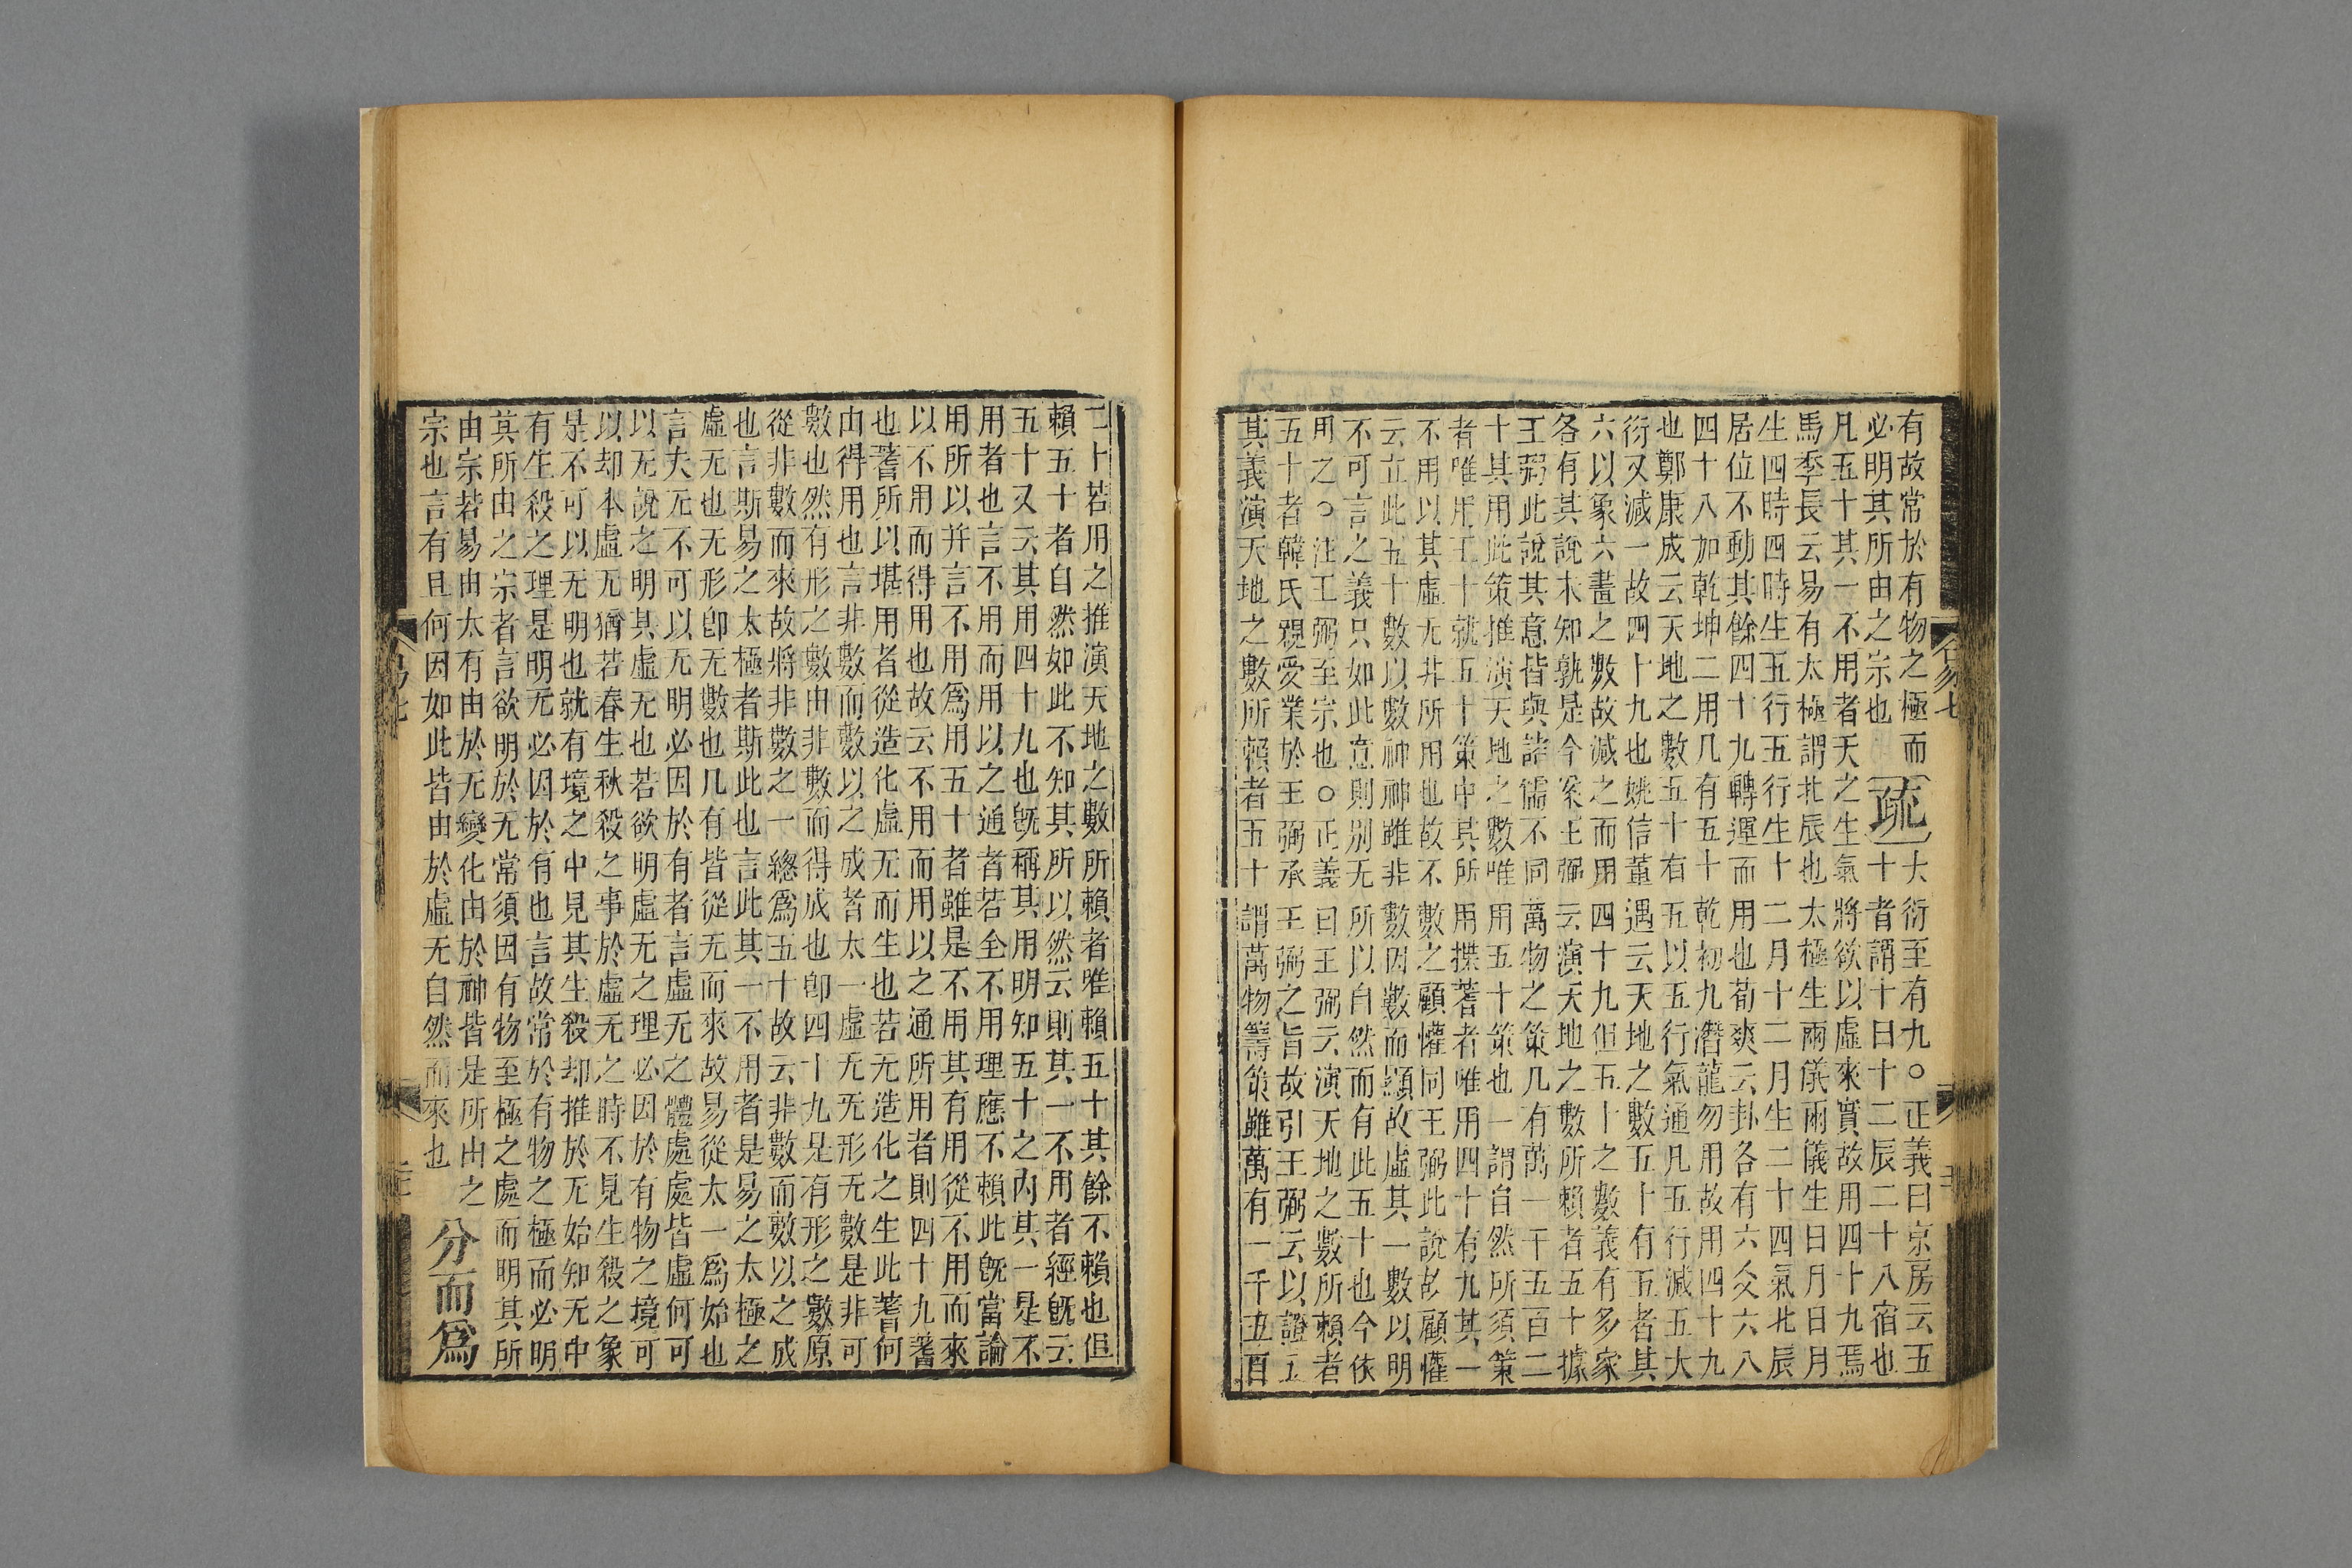 有故常於有物之極而
必明其所由之宗也
疏
大衍至有九○正義曰京房云五
十者謂十日十二辰二十八宿也
凡五十其一不用者天之生氣將欲以虛來實故用四十九焉
馬季長云易有太極謂北辰也太極生兩儀兩儀生日月日月
生四時四時生五行五行生十二月十二月生二十四氣北辰
居位不動其餘四十九轉運而用也荀爽云卦各有六爻六八
四十八加乾坤二用凡有五十乾初九潛龍勿用故用四十九
也鄭康成云天地之數五十有五以五行氣通凡五行減五大
衍又減一故四十九也姚信董遇云天地之數五十有五者其
六以象六畫之數故減之而用四十九但五十之數義有多家
各有其說未知孰是今案王弼云演天地之數所賴者五十據
王弼此說其意皆與諸儒不同萬物之策凡有萬一千五百二
十其用此策推演天地之數唯用五十策也一謂自然所須策
者唯用五十就五十策中其所用揲蓍者唯用四十有九其一
不用以其虛无非所用也故不數之顧懽同王弼此說故顧懽
云立此五十數以數神神雖非數因數而顯故虛其一數以明
不可言之義只如此意則別无所以自然而有此五十也今依
用之○注王弼至宗也○正義曰王弼云演天地之數所賴者
五十者韓氏親愛業於王弼承王弼之旨故引王弼云以證五
其義演天地之數所賴者五十謂萬物籌策雖萬有一千五百
二十若用之推演天地之數所賴者唯賴五十其餘不賴也但
賴五十者自然如此不知其所以然云則其一不用者經既云
五十又云其用四十九也既稱其用明知五十之內其一是不
用者也言不用而用以之通者若全不用理應不賴此既當論
用所以并言不用爲用五十者雖是不用其有用從不用而來
以不用而得用也故云不用而用以之通所用者則四十九蓍
也蓍所以堪用者從造化虛无而生也若无造化之生此蓍何
由得用也言非數而數以之成者太一虛无无形无數是非可
數也然有形之數由非數而得成也卽四十九是有形之數原
從非數而來故將非數之一總爲五十故云非數而數以之成
也言斯易之太極者斯此也言此其一不用者是易之太極之
虛无也无形卽无數也凡有皆從无而來故易從太一爲始也
言夫无不可以无明必因於有者言虛无之體處處皆虛何可
以无說之明其虛无也若欲明虛无之理必因於有物之境可
以却本虛无猶若春生秋殺之事於虛无之時不見生殺之象
是不可以无明也就有境之中見其生殺却推於无始知无中
有生殺之理是明无必因於有也言故常於有物之極而必明
其所由之宗者言欲明於无常須因有物至極之處而明其所
由宗若易由太有由於无變化由於神皆是所由之
宗也言有且何因如此皆由於虛无自然而來也
分而爲
易七